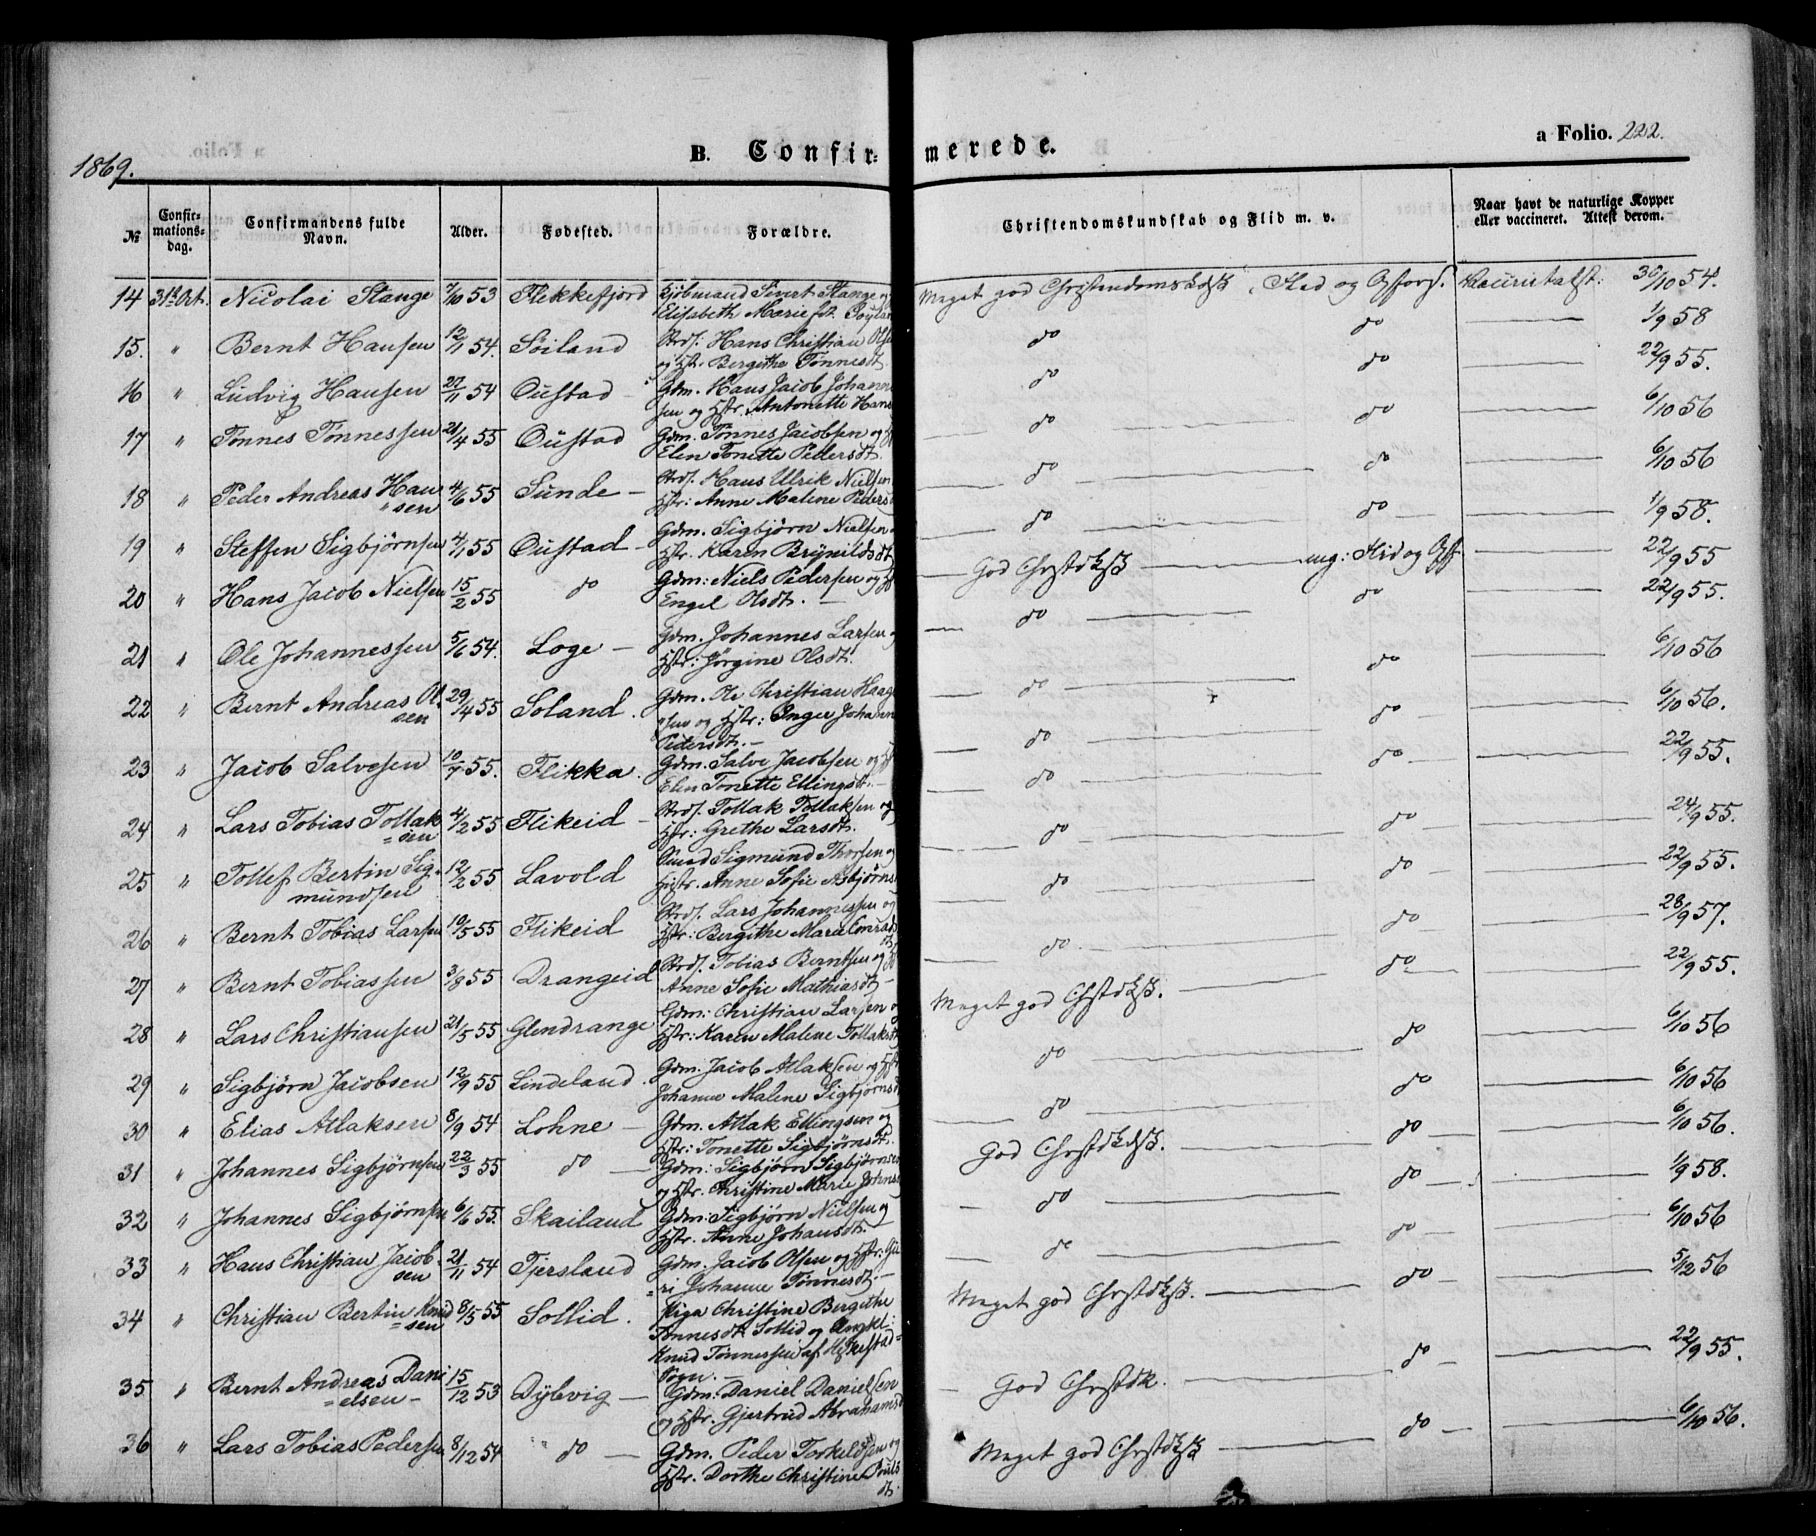 1869.
B. Confirmerede.
a Folio. 222.
№
Confirmationsdag.
Confirmandens fulde Navn.
Alder.
Fødested.
Forældre.
Christendomskundskab og Flid m. v.
Naar havt de naturlige Kopper eller vaccineret. Attest derom.
14 31te Oct. Nicolai Stange 7/10 53 Flekkefjord Kjøbmand Sivert Stange og Meget god , Flid og Opførs. 30/10 54.
Elisabeth Marie
15. " Bernt Hansen 12/11 54. Søiland Hans Christian Olsen do do 1/9 58
og Hstr. Bergithe Tønnesdt.
16 " Ludvig Hansen 27/11 54 Oustad Gdm. Hans Jacob Johanne- do do 22/9 55.
sen og Hstr. Antonette Hans
17 " Tønnes Tønnessen 21/4 55 Oustad Gdm. Tønnes Jacobsen og do do 6/10 56
Elen Tonette Pedersdt.
18 " Peder Andreas Han- 4/6 55 Sunde Hans Ulrik Nielsen do do 6/10 56
sen Hstr: Anne Malene Peders
19 " Steffen Sigbjørnsen 4/1 55 Oustad Gdm. Sigbjørn Nielsen do do 1/9 58.
Hstr. Karen Brynildsdt.
20 " Hans Jacob Nielsen 15/2 55 do Gdm: Niels Pedersen og God Chrstdksk mg: Flid og Opf 22/9 55
Engel Olsdt.
21 " Ole Johannessen 5/6 54. Loge Gdm. Johannes Larsen do do 22/9 55.
Hstr: Jørgine Olsdt.
22 " Bernt Andreas Ol- 29/4 55 Soland. Gdm. Ole Christian Haag- do do 6/10 56
sen sen og Hstr: Inger Johanne
Pedersdt.
23 " Jacob Salvesen 10/7 55. Flikka. Gdm. Salve Jacobsen og do do 6/10 56.
Elen Tonette Ellingsdt.
24 " Lars Tobias Tollak- 4/2 55 Flikeid Tollak Tollaksen og do do 22/9 55.
sen Hstr: Grethe Larsdt.
25 " Tollef Bertin Sig- 12/2 55 Lavold Sigmund Thorsen og do do 24/9 55.
mundsen Hstr. Anne Sofie Asbjørns
26 " Bernt Tobias Larsen 10/5 55 Flikeid Lars Johannessen og do do 22/9 55.
Hstr: Bergithe Marie Conrads
dt.
27 " Bernt Tobiassen 3/8 55 Drangeid Tobias Berntsen og do do 28/9 57.
Anne Sofie Mathiasdt
28 " Lars Christiansen 21/5 55 Glendrange Gdm: Christian Larsen og Meget god Chrstdksk. do 22/9 55.
Hstr: Karen Malene Tollaksdt
29 " Sigbjørn Jacobsen 12/9 55 Lindeland. Gdm. Jacob Atlaksen og Hst do do 6/10 56
Johanne Malene Sigbjørnsdt
30 " Elias Atlaksen 8/9 54 Lohne Gdm. Atlak Ellingsen og do do 6/10 56
Hstr: Tonette Sigbjørnsdt.
31 " Johannes Sigbjørnsen 22/3 55 do Gdm: Sigbjørn Sigbjørnsen God Chrstdksk. do 6/10 56.
og Hstr. Christine Marie Johns
32 " Johannes Sigbjørnsen 6/6 55. Skailand Gdm: Sigbjørn Nielsen og do do 1/9 58.
Hstr. Anne Johansdt.
33 " Hans Christian Jacob- 21/11 54 Tjersland Gdm. Jacob Olsen og Hstr: Gu- do do 6/10 56
sen ri Johanne Tønnesdt.
34 " Christian Bertin Knud 8/5 55 Sollid. Piga Christine Bergithe Meget god Chrstdksk. do 5/12 56
sen Tønnesdt Sollid og Ungkl:
Knud Tønnessen af Heskestad
Sogn.
35 " Bernt Andreas Dani- 15/12 53 Dybvig Gdm: Daniel Danielsen God Chrstdk. do 22/9 55.
elsen og Hstr. Gjertrud Abrahamsd
36 " Lars Tobias Pedersen 8/12 54 do Gdm. Peder Torkeldsen og Meget god Chrstdksk do 6/10 56.
Hstr. Dorthe Christine Pouls
dt.